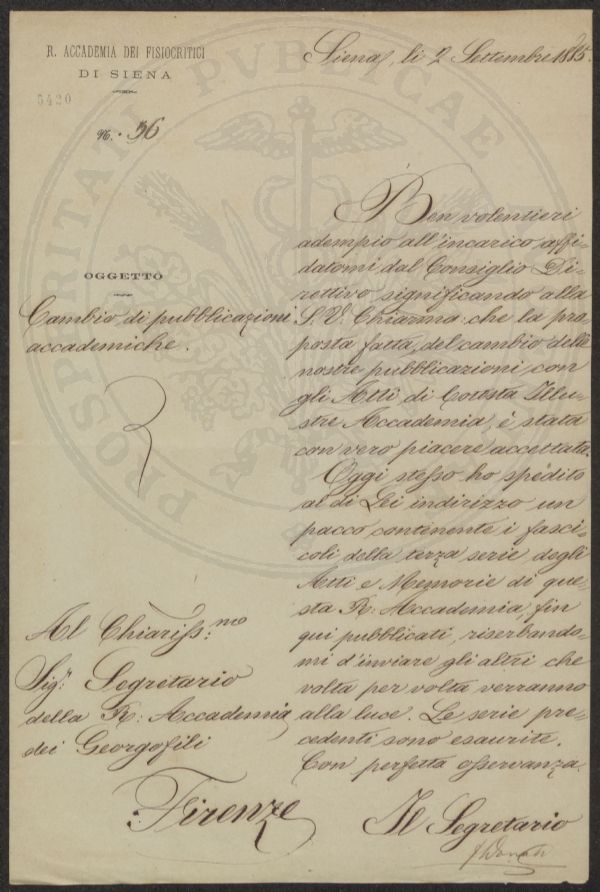 R. ACCADEMIA DEI FISIOCRITICI
DI SIENA
5420
N. 36
Siena, li 2 Settembre 1885.
OGGETTO
Cambio di pubblicazioni
accademiche.
Ben volentieri
adempio all'incarico affi-
datomi dal Consiglio Di-
rettivo significando alla
S. V. Chiarma: che la pro-
posta fatta, del cambio delle
nostre pubblicazioni, con
gli Atti di Cotesta Illu-
stre Accademia, è stata
con vero piacere accettata.
Oggi stesso ho spedito
al di Lei indirizzo un
pacco contenente i fasci-
coli della terza serie degli
Atti e Memorie di que-
sta R: Accademia, fin
qui pubblicati, riserbando-
mi d'inviare gli altri che
volta per volta verranno
alla luce. Le serie pre-
cedenti sono esaurite.
Con perfetta osservanza.
Al Chiariss:mo
Sig.r Segretario
della R: Accademia
dei Georgofili
Firenze
Il Segretario
PROSPERITATI PVBLICAE